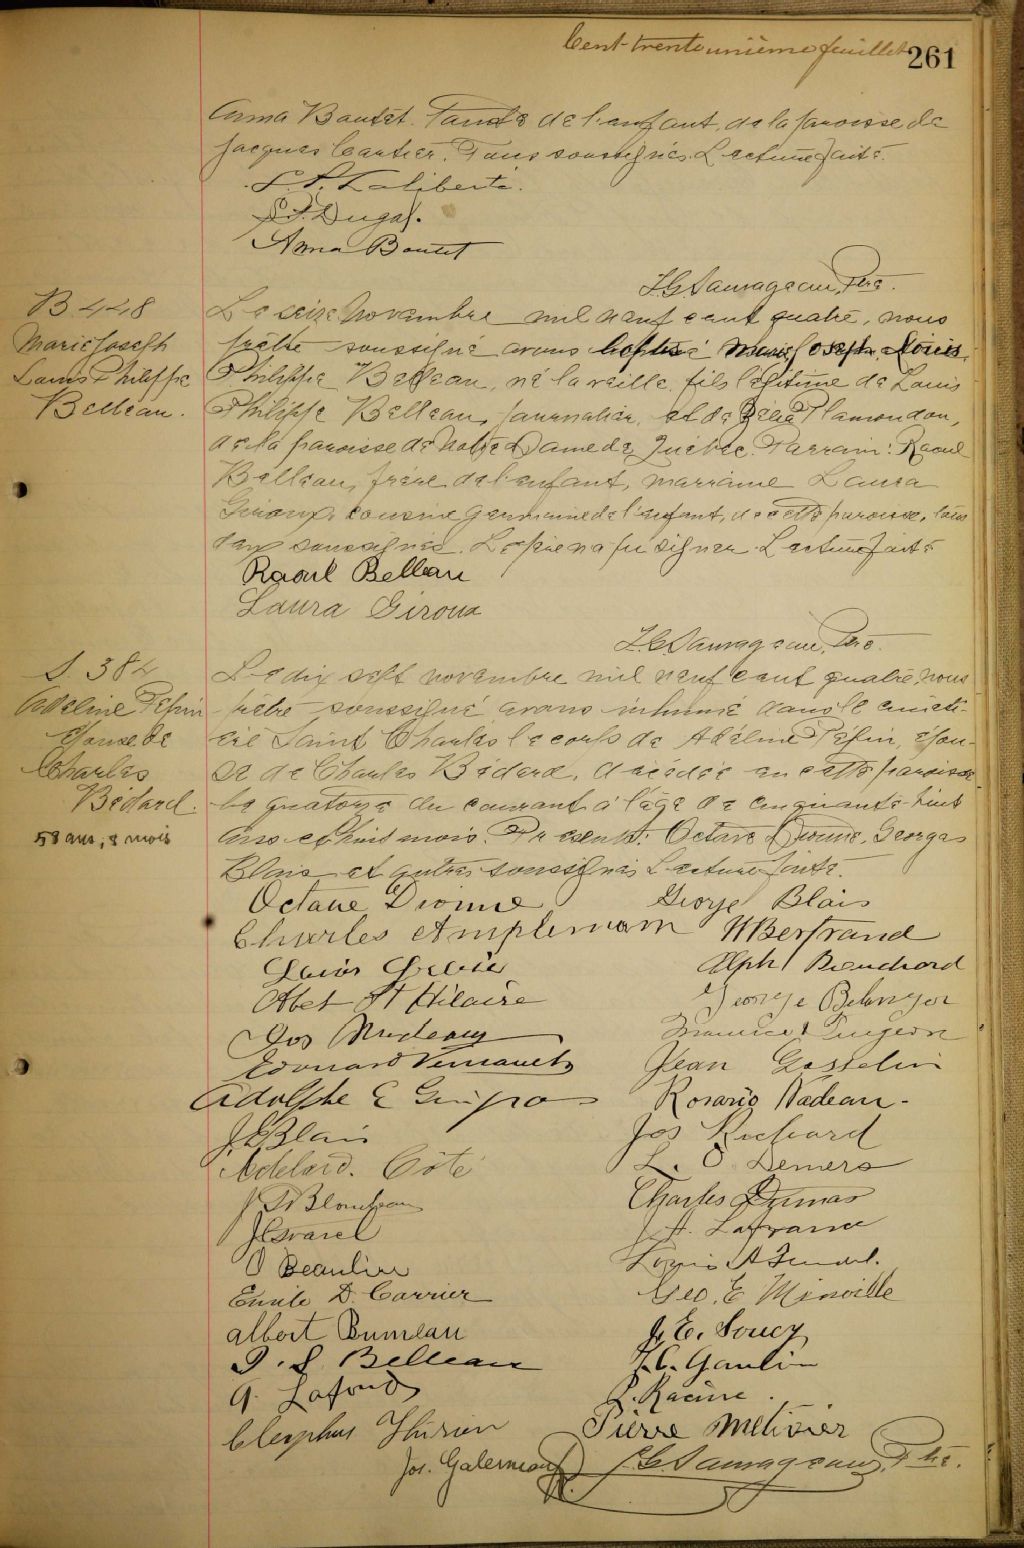 Cent-trente unième feuillet 261
Anna Boutet Tante de l'enfant, de la paroisse de
Jacques Cartier. Tous soussignés. Lecture faite.
Laliberté.
Dugal.
Anna Boutet
J.G. Sauvageau, Ptre.
B 448
Marie Joseph
Louis Philippe
Belleau.
Le seize Novembre mil neuf cent quatre, nous
prêtre soussigné avons baptisé Marie Joseph Louis
Philippe Belleau, né la veille, fils légitime de Louis
Philippe Belleau, journalier, et de Plamondon,
de la paroisse de Notre Dame de Québec. Parrain: Raoul
Belleau, frère de l'enfant, marraine Laura
Giroux, cousine germaine de l'enfant, de cette paroisse, tous
deux soussignés. Le père n'a pu signer. Lecture faite
Raoul Belleau
Laura Giroux
J.G. Sauvageau, Ptre.
S. 384
Adeline Pepin
Epouse de
Charles
Bédard.
58 ans, 8 mois
Le dix sept novembre mil neuf cent quatre, nous
prêtre soussigné avons inhumé dans le cimeti-
ère Saint Charles le corps de Adéline Pepin, épou-
se de Charles Bédard, décédée en cette paroisse
le quatorze du courant à l'âge de cinquante-huit
ans et huit mois. Présents: Octave Dionne, Georges
Blais et autres soussignés Lecture faite.
Octave Dionne George Blais
Charles Amplemam Bertrand
Louis Alph Blanchard
Abel St Hilaire George Belanger
Jos Nadeau Maurice Turgeon
Edouard Jean Gosselin
Adolphe E Rosario Nadeau.
J.E. Blais Jos Richard
Adelard. Côté L. O Demers
Blondeau Charles Dumas
J.A. Lafrance
O Beaulieu Louis A
Emile D. Carrier Geo. E Minville
albert Bumeau J.E. Soucy
P. S. Belleau J.C. Gaulin
A. Lafond L. Racine.
Cleophas Pierre Metivier
Jos. Galerneau J.G. Sauvageau, Ptre.